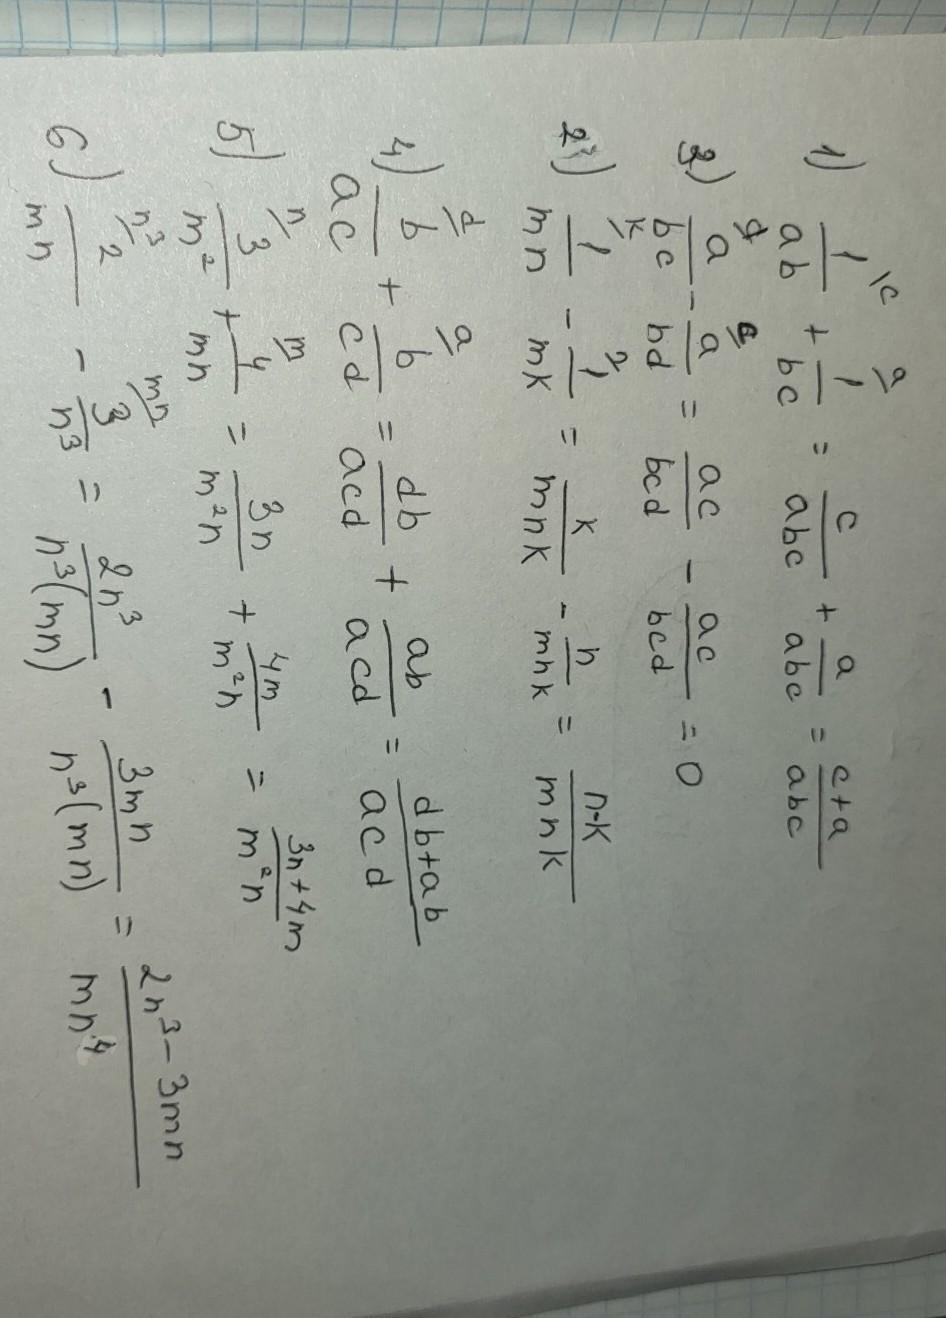 1) 1/ab \c + 1/bc \a = c/abc + a/abc = c+a/abc
2) a/bc \d - a/bd \c = ac/bcd - ac/bcd = 0
3) 1/mn \k - 1/mk \n = k/mnk - n/mnk = n-k/mnk
4) b/ac \d + b/cd \a = db/acd + ab/acd = db+ab/acd
5) 3/m² \n + 4/mn \m = 3n/m²n + 4m/m²n = 3n+4m/m²n
6) 2/mn \n³ - 3/n³ \mn = 2n³/n³(mn) - 3mn/n³(mn) = 2n³-3mn/mn⁴